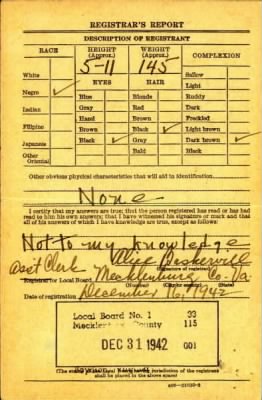 REGISTRAR'S REPORT
DESCRIPTION OF REGISTRANT
RACE HEIGHT (Approx.) WEIGHT (Approx.) COMPLEXION
5-11 145
White Sallow
EYES HAIR Light
Negro ✓ Blue Blonde Ruddy
Indian Gray Red Dark
Hazel Brown Freckled
Filipino Brown Black ✓ Light brown
Japanese Black ✓ Gray Dark brown ✓
Other Bald Black
Oriental
Other obvious physical characteristics that will aid in identification
None
I certify that my answers are true; that the person registered has read or has had
read to him his own answers; that I have witnessed his signature or mark and that
all of his answers of which I have knowledge are true, except as follows:
Not to my knowledge
Ass't Clerk Alice Baskervill
(Signature of registrar)
Registrar for Local Board Mecklenburg Co. Va.
(Number) (City or county) (State)
Date of registration December 16, 1942
Local Board No. 1 33
Mecklenburg County 115
DEC 31 1942 001
Virginia
(The stamp of the Local Board having jurisdiction of the registrant
shall be placed in the above space)